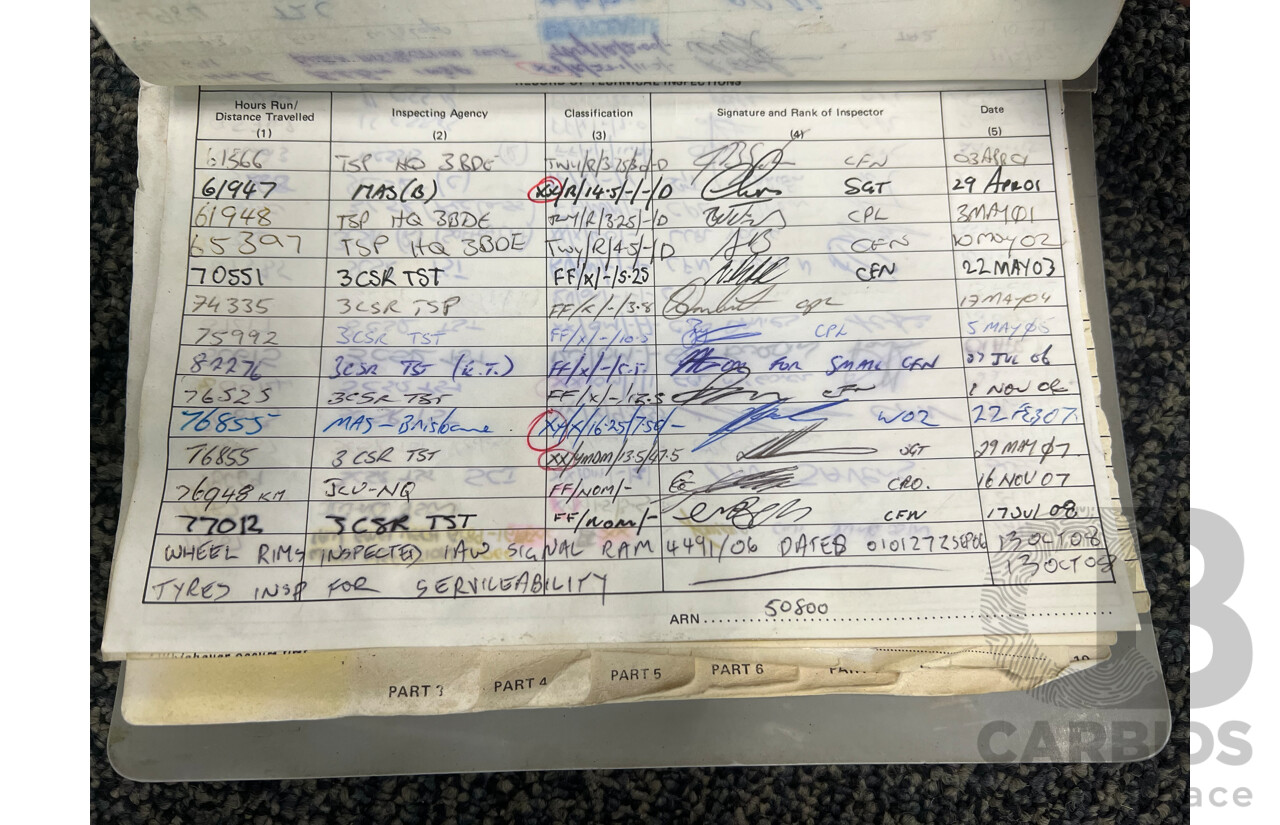 RECORD OF TECHNICAL INSPECTIONS
Hours Run/ Distance Travelled (1) Inspecting Agency (2) Classification (3) Signature and Rank of Inspector (4) Date (5)
61566 TSP HQ 3BDE TWY/R/3.25/-/-D CFN 03APR01
61947 MAS(B) XX/R/14.5/-/-/D SGT 29 APR01
61948 TSP HQ 3BDE TWY/R/325/-/D CPL 3MAY01
65397 TSP HQ 3BDE TWY/R/4.5/-/D CFN 10MAY02
70551 3CSR TST FF/X/-/5.25 CFN 22MAY03
74335 3CSR TSP FF/X/-/3.8 CPL 17MAY04
75992 3CSR TST FF/X/-/10.5 CPL 5 MAY05
82276 3CSR TST (K.T.) FF/X/-/5.5 FOR CFN 27 JUL 06
76525 3CSR TST FF/X/-/12.5 CFN 1 NOV 06
76855 MAS-Brisbane XX/X/16.25/7.50/- WO2 22FEB07
76855 3 CSR TST XX/4MDM/13.5/47.5 SGT 29MAY07
76948 KM JLU-NQ FF/NOM/- CRO. 16NOV07
77012 3CSR TST FF/NOM/- CFN 17JUL08
WHEEL RIMS INSPECTED IAW SIGNAL RAM 4491/06 DATED 010127ZSEP06 13OCT08
TYRES INSP FOR SERVICEABILITY 13OCT08
ARN 50800
PART 3 PART 4 PART 5 PART 6
CARBIDS